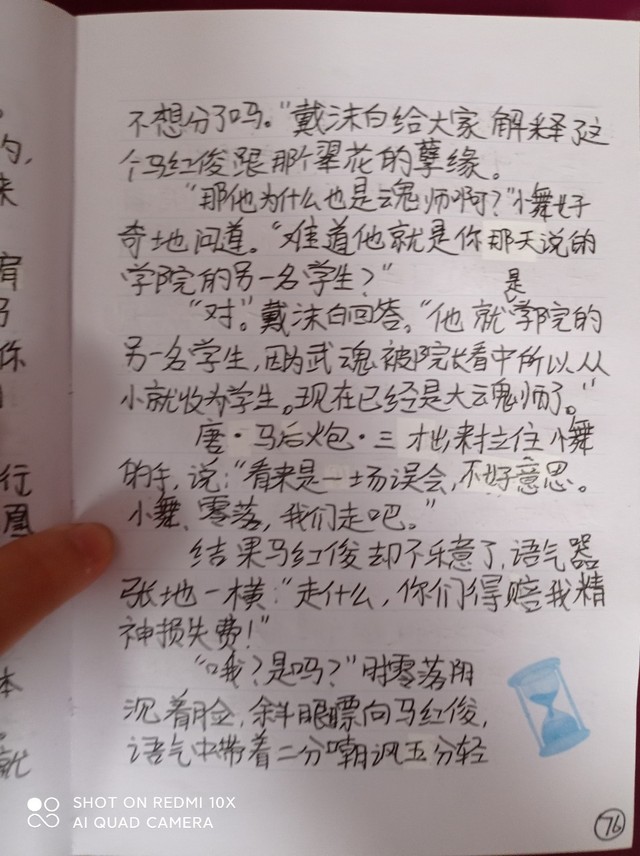 不想分了吗。"戴沫白给大家解释了这
个马红俊跟那个翠花的孽缘。
"那他为什么也是魂师啊？"小舞好
奇地问道。"难道他就是你那天说的
学院的另一名学生？"
"对。"戴沫白回答，"他就是学院的
另一名学生，因为武魂被院长看中所以从
小就收为学生。现在已经是大魂师了。"
唐·马后炮·三 才出来拉住小舞
的手，说："看来是一场误会，不好意思。
小舞、零落，我们走吧。"
结果马红俊却不乐意了，语气嚣
张地一横："走什么，你们得赔我精
神损失费！"
"哦？是吗？"时零落阴
沉着脸，斜眼瞟向马红俊，
语气中带着二分嘲讽五分轻
76
的，
来
肩
你
行
凰
本
就
SHOT ON REDMI 10X
AI QUAD CAMERA